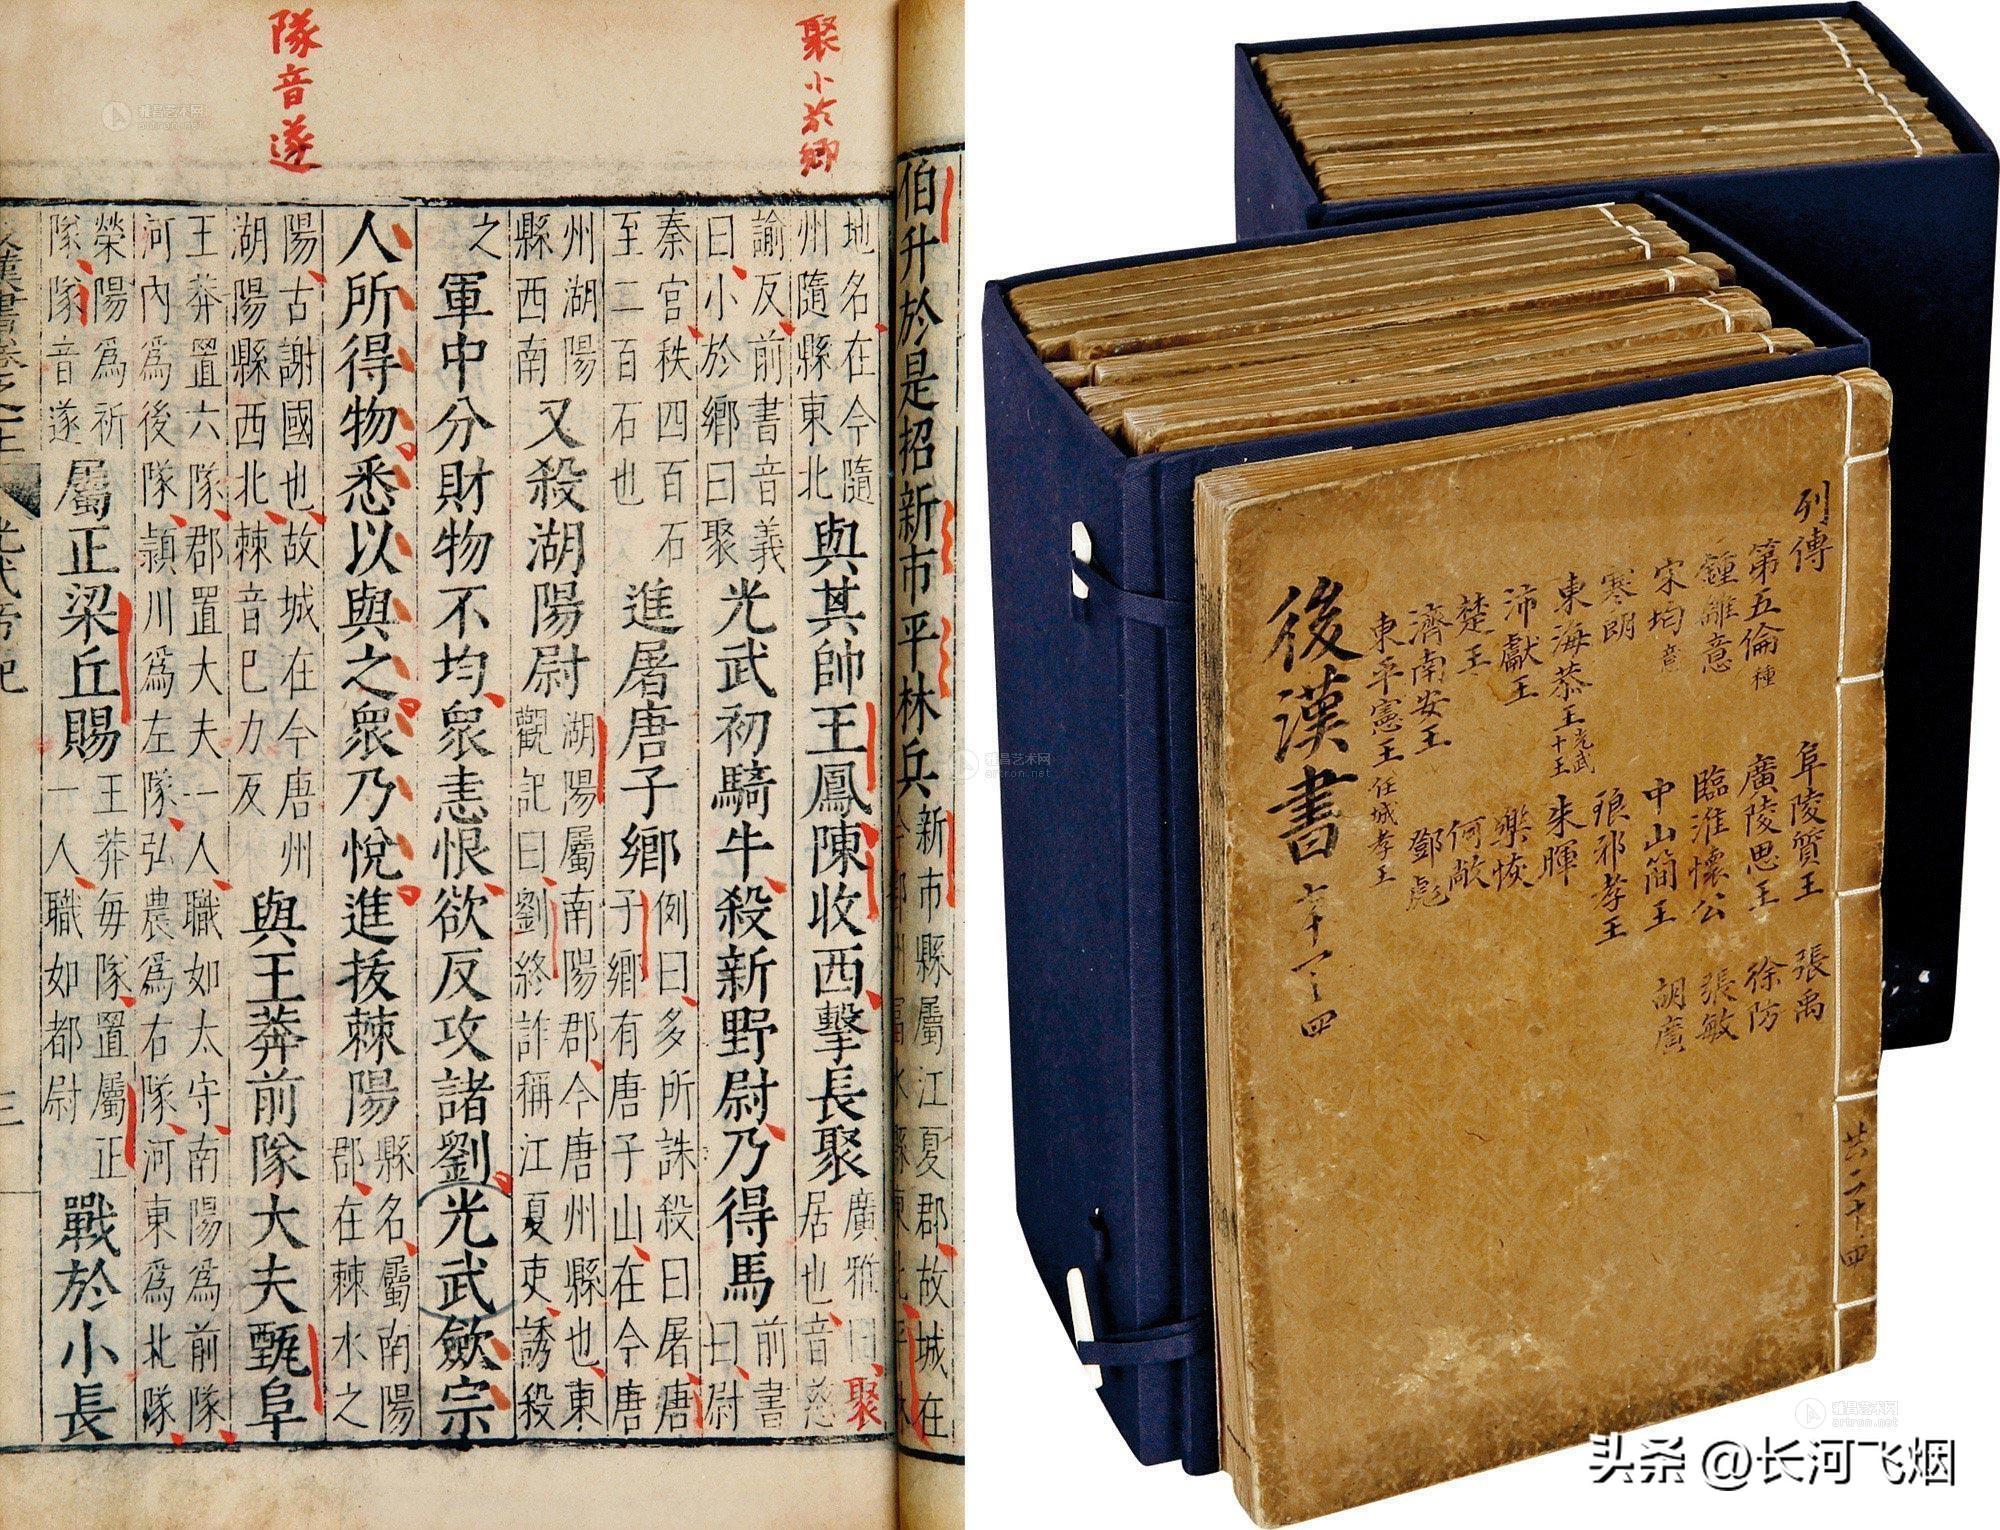 聚小於鄉
隊音遂
伯升於是招新市平林兵
新市縣屬江夏郡故城在
地名在今隨
州隨縣東北
與其帥王鳳陳收西擊長聚
廣雅曰聚
居也音慈
諭反前書音義
曰小於鄉曰聚
光武初騎牛殺新野尉乃得馬
前書
曰尉
秦官秩四百石
至二百石也
進屠唐子鄉
例曰多所誅殺曰屠唐
子鄉有唐子山在今唐
州湖陽
縣西南
又殺湖陽尉
湖陽屬南陽郡今唐州縣也東
觀記曰劉終詐稱江夏吏誘殺
之
軍中分財物不均眾恚恨欲反攻諸劉光武斂宗
人所得物悉以與之眾乃悅進拔棘陽
縣名屬南陽
郡在棘水之
陽古謝國也故城在今唐州
湖陽縣西北棘音己力反
與王莽前隊大夫甄阜
王莽置六隊郡置大夫一人職如太守南陽為前隊
河內為後隊潁川為左隊弘農為右隊河東為北隊
滎陽為祈
隊隊音遂
屬正梁丘賜
王莽每隊置屬正
一人職如都尉
戰於小長
三
列傳
第五倫 種
鍾離意
宋均 音
寒朗
東海恭王 光武十王
沛獻王
楚王
濟南安王
東平憲王 任城孝王
阜陵質王
廣陵思王
臨淮懷公
中山簡王
琅邪孝王
朱暉
樂恢
何敞
鄧彪
張禹
徐防
張敏
胡廣
後漢書
共二十四
雅昌艺术网
artron.net
雅昌艺术网
artron.net
雅昌艺术网
artron.net
头条 @长河飞烟